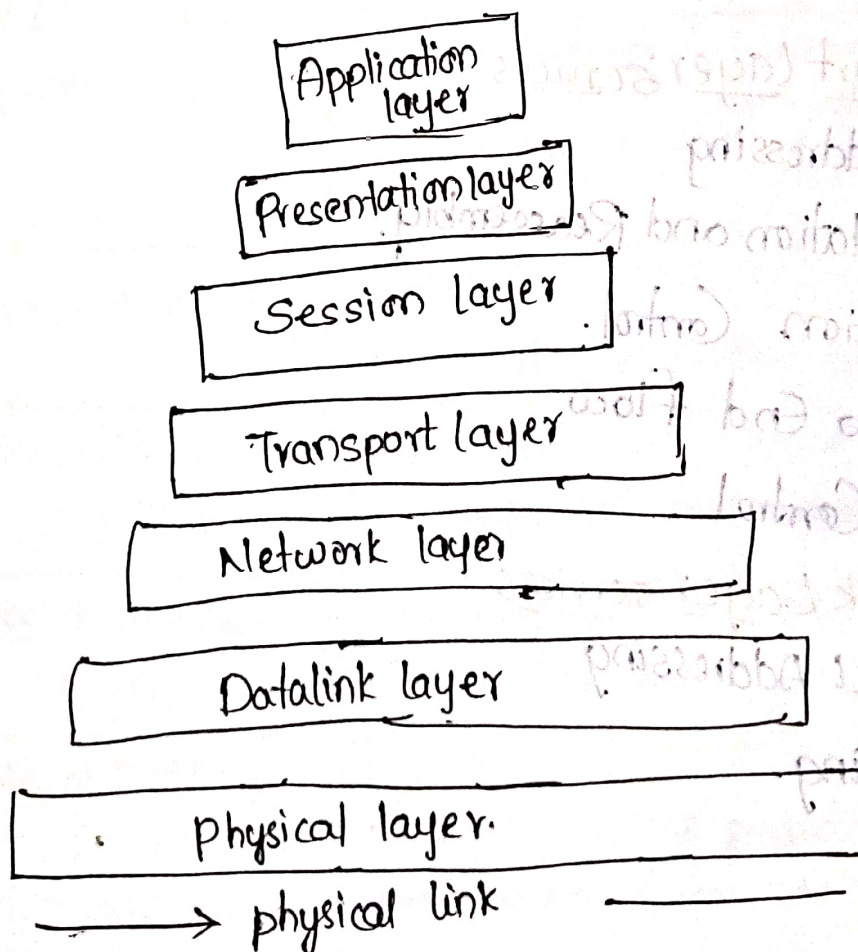 Application
layer
Presentation layer
Session layer
Transport layer
Network layer
Datalink layer
Physical layer.
physical link